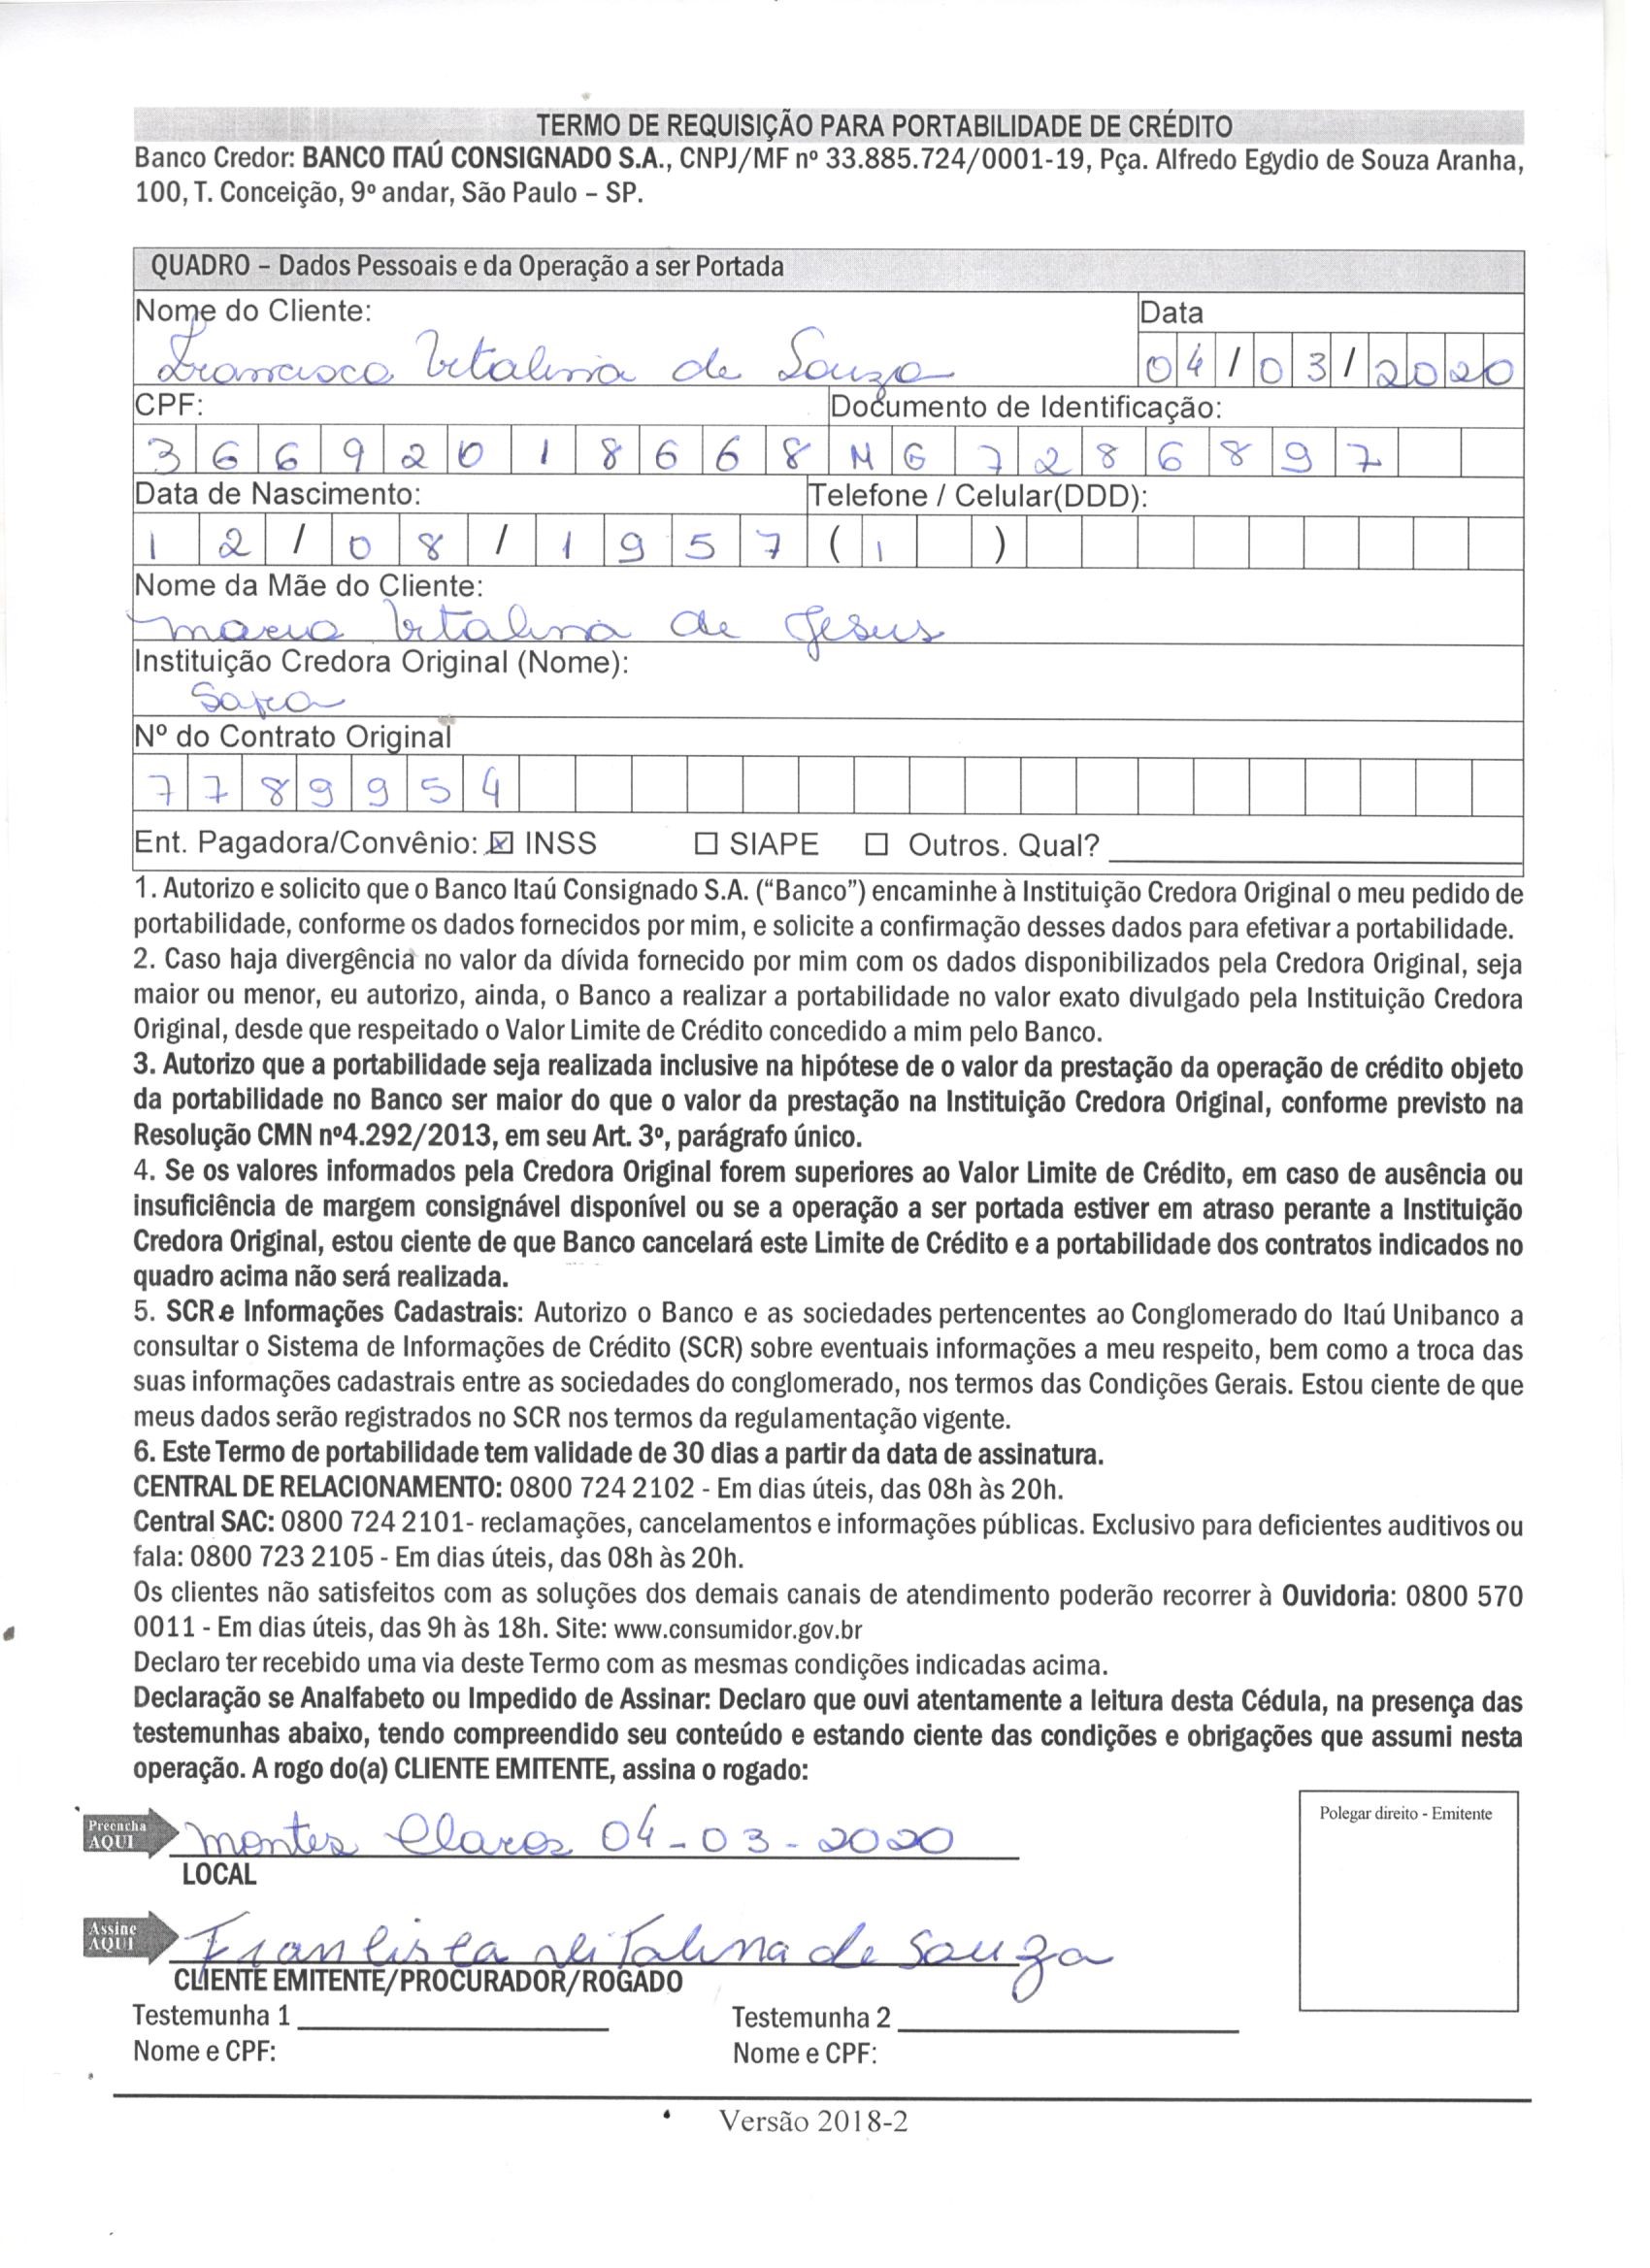 TERMO DE REQUISIÇÃO PARA PORTABILIDADE DE CRÉDITO
Banco Credor: BANCO ITAÚ CONSIGNADO S.A., CNPJ/MF nº 33.885.724/0001-19, Pça. Alfredo Egydio de Souza Aranha,
100, T. Conceição, 9º andar, São Paulo – SP.
QUADRO – Dados Pessoais e da Operação a ser Portada
Nome do Cliente: Data
Francisca Vitalina de Souza 04/03/2020
CPF: Documento de Identificação:
36692018668 MG7286897
Data de Nascimento: Telefone / Celular(DDD):
12/08/1957 ( )
Nome da Mãe do Cliente:
Maria Vitalina de Jesus
Instituição Credora Original (Nome):
Safra
Nº do Contrato Original
7789954
Ent. Pagadora/Convênio: ☒ INSS ☐ SIAPE ☐ Outros. Qual?
1. Autorizo e solicito que o Banco Itaú Consignado S.A. (“Banco”) encaminhe à Instituição Credora Original o meu pedido de
portabilidade, conforme os dados fornecidos por mim, e solicite a confirmação desses dados para efetivar a portabilidade.
2. Caso haja divergência no valor da dívida fornecido por mim com os dados disponibilizados pela Credora Original, seja
maior ou menor, eu autorizo, ainda, o Banco a realizar a portabilidade no valor exato divulgado pela Instituição Credora
Original, desde que respeitado o Valor Limite de Crédito concedido a mim pelo Banco.
3. Autorizo que a portabilidade seja realizada inclusive na hipótese de o valor da prestação da operação de crédito objeto
da portabilidade no Banco ser maior do que o valor da prestação na Instituição Credora Original, conforme previsto na
Resolução CMN nº4.292/2013, em seu Art. 3º, parágrafo único.
4. Se os valores informados pela Credora Original forem superiores ao Valor Limite de Crédito, em caso de ausência ou
insuficiência de margem consignável disponível ou se a operação a ser portada estiver em atraso perante a Instituição
Credora Original, estou ciente de que Banco cancelará este Limite de Crédito e a portabilidade dos contratos indicados no
quadro acima não será realizada.
5. SCR e Informações Cadastrais: Autorizo o Banco e as sociedades pertencentes ao Conglomerado do Itaú Unibanco a
consultar o Sistema de Informações de Crédito (SCR) sobre eventuais informações a meu respeito, bem como a troca das
suas informações cadastrais entre as sociedades do conglomerado, nos termos das Condições Gerais. Estou ciente de que
meus dados serão registrados no SCR nos termos da regulamentação vigente.
6. Este Termo de portabilidade tem validade de 30 dias a partir da data de assinatura.
CENTRAL DE RELACIONAMENTO: 0800 724 2102 - Em dias úteis, das 08h às 20h.
Central SAC: 0800 724 2101- reclamações, cancelamentos e informações públicas. Exclusivo para deficientes auditivos ou
fala: 0800 723 2105 - Em dias úteis, das 08h às 20h.
Os clientes não satisfeitos com as soluções dos demais canais de atendimento poderão recorrer à Ouvidoria: 0800 570
0011 - Em dias úteis, das 9h às 18h. Site: www.consumidor.gov.br
Declaro ter recebido uma via deste Termo com as mesmas condições indicadas acima.
Declaração se Analfabeto ou Impedido de Assinar: Declaro que ouvi atentamente a leitura desta Cédula, na presença das
testemunhas abaixo, tendo compreendido seu conteúdo e estando ciente das condições e obrigações que assumi nesta
operação. A rogo do(a) CLIENTE EMITENTE, assina o rogado:
Polegar direito - Emitente
Preencha AQUI Montes Claros 04-03-2020
LOCAL
Assine AQUI Francisca Vitalina de Souza
CLIENTE EMITENTE/PROCURADOR/ROGADO
Testemunha 1 Testemunha 2
Nome e CPF: Nome e CPF:
Versão 2018-2